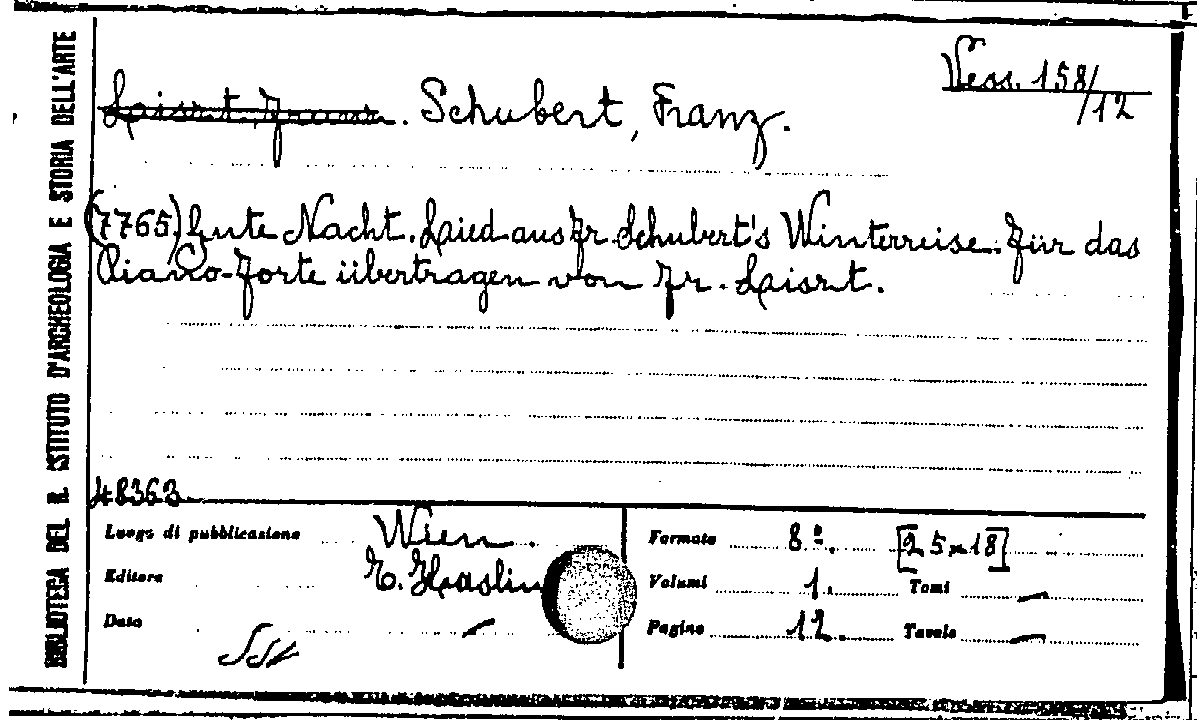 Vess. 158/12
Laiszt, Franz. Schubert, Franz.
(7765) Gute Nacht. Laied aus Fr. Schubert's Winterreise. Für das
Piano-Forte übertragen von Fr. Laiszt.
48363
BIBLIOTECA DEL R. ISTITUTO D'ARCHEOLOGIA E STORIA DELL'ARTE
Luogo di pubblicazione Wien.
Editore Haslin
Data —
Formato 8º. [25x18]
Volumi 1. Tomi —
Pagine 12. Tavole —